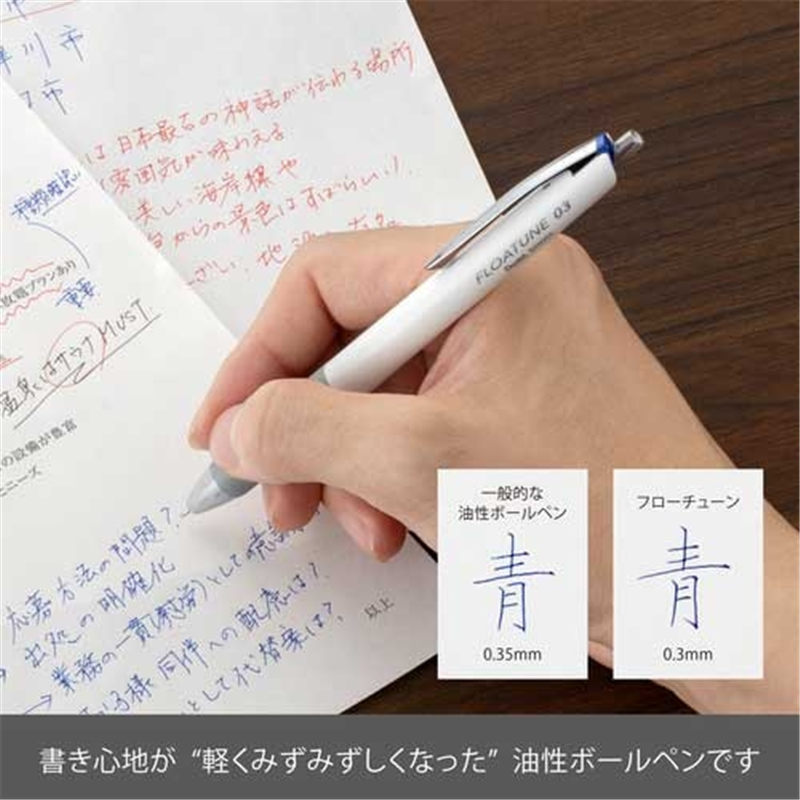 市
津川市
口市
は日本最古の神話が伝わる場所
雰囲気が味わえる
美しい海岸様や
からの景色はすばらしい!
FLOATUNE 03
放題プランあり
重要
温泉とはサウナMUST.
の設備が豊富
ニーズ
応募方法の問題?
出処の明確化
業務の一貫(慰労)として
同伴への配慮は?
として代替案は?
以上
一般的な
油性ボールペン
青
0.35mm
フローチューン
青
0.3mm
書き心地が “軽くみずみずしくなった” 油性ボールペンです